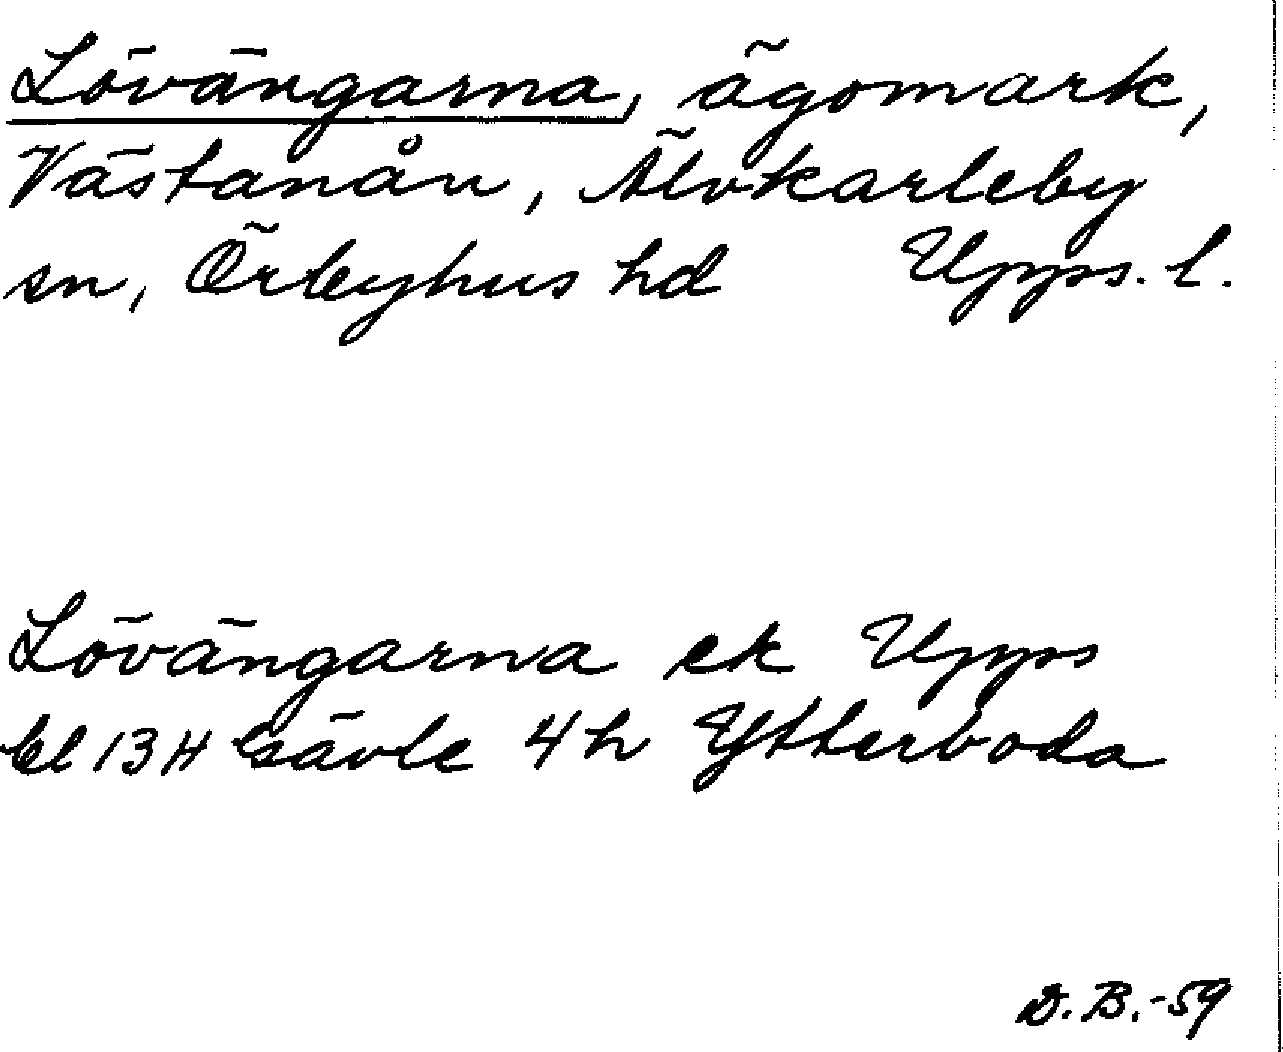 Lövängarna, ägomark,
Västanån, Älvkarleby
sn, Örbyhus hd Upps. l.
Lövängarna ek Upps
bl 13H Gävle 4h Ytterboda
D.B.-59